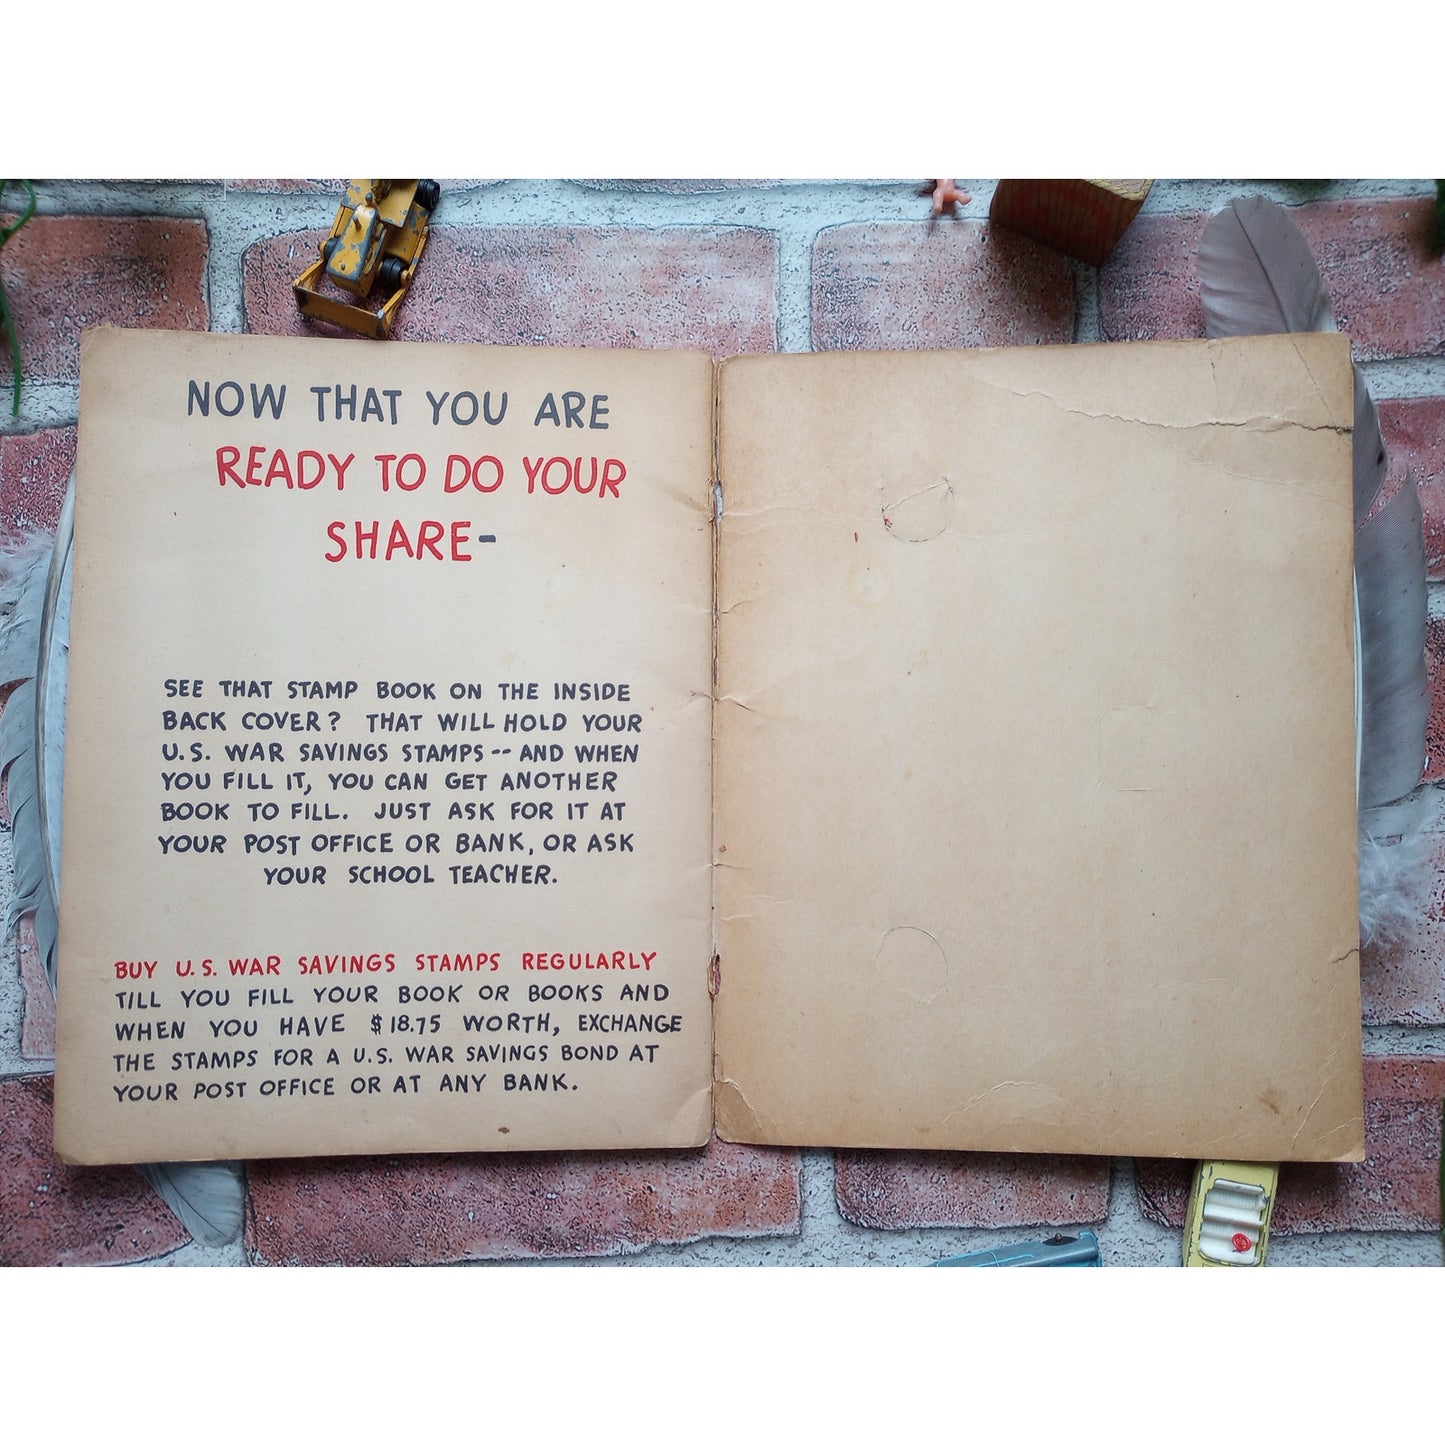 NOW THAT YOU ARE
READY TO DO YOUR
SHARE-
SEE THAT STAMP BOOK ON THE INSIDE
BACK COVER? THAT WILL HOLD YOUR
U.S. WAR SAVINGS STAMPS -- AND WHEN
YOU FILL IT, YOU CAN GET ANOTHER
BOOK TO FILL. JUST ASK FOR IT AT
YOUR POST OFFICE OR BANK, OR ASK
YOUR SCHOOL TEACHER.
BUY U.S. WAR SAVINGS STAMPS REGULARLY
TILL YOU FILL YOUR BOOK OR BOOKS AND
WHEN YOU HAVE $18.75 WORTH, EXCHANGE
THE STAMPS FOR A U.S. WAR SAVINGS BOND AT
YOUR POST OFFICE OR AT ANY BANK.